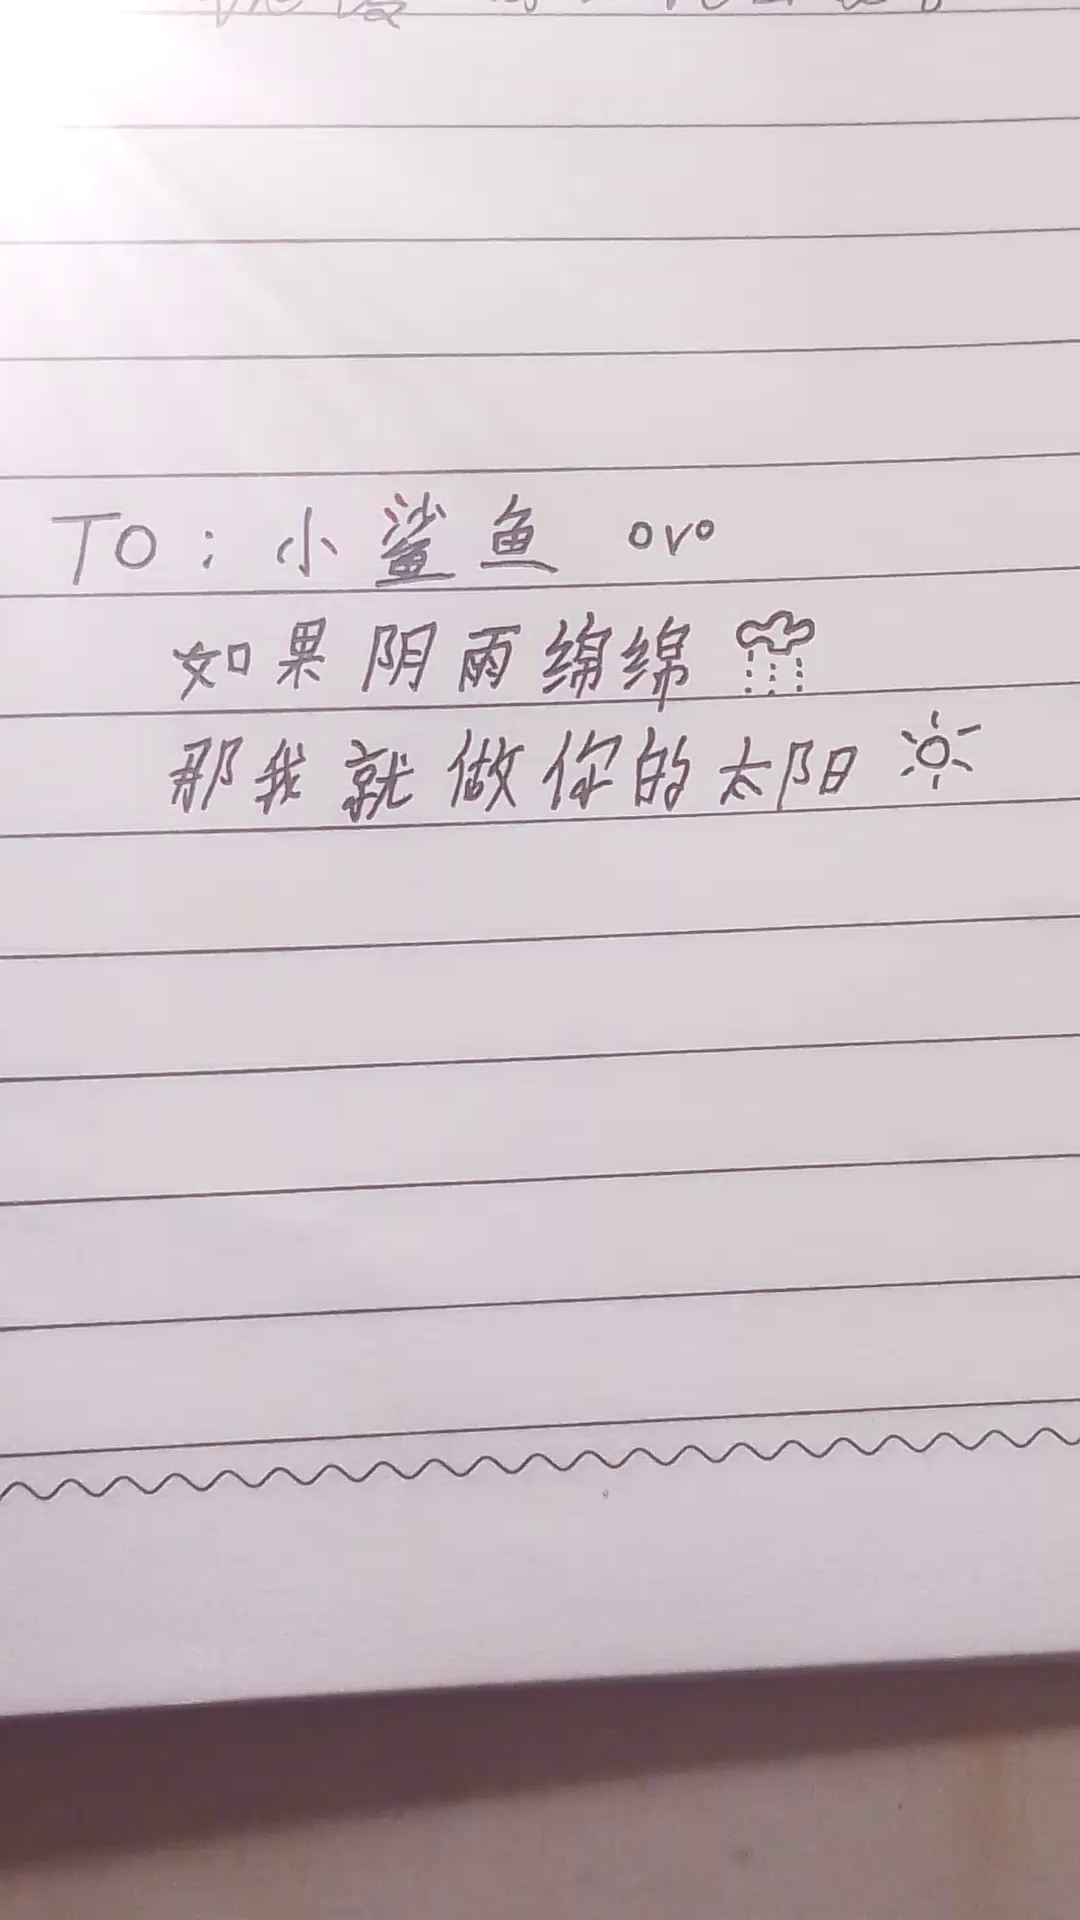 TO：小鲨鱼 ovo
如果阴雨绵绵
那我就做你的太阳